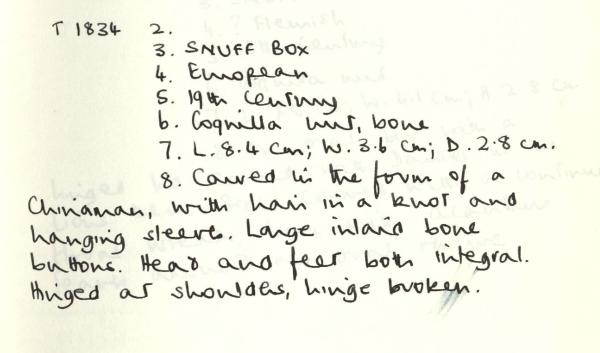 T 1834 2.
3. SNUFF BOX
4. European
5. 19th Century
6. Coquilla nut, bone
7. L. 8.4 cm; W. 3.6 cm; D. 2.8 cm.
8. Carved in the form of a
Chinaman, with hair in a knot and
hanging sleeves. Large inlaid bone
buttons. Head and feet both integral.
Hinged at shoulders, hinge broken.